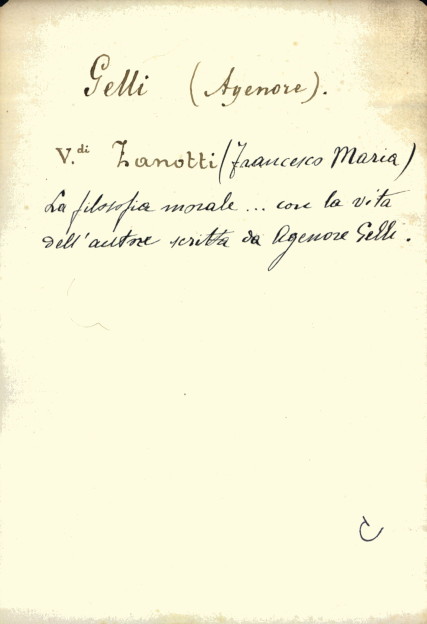 Gelli (Agenore).
V.di Zanotti (Francesco Maria)
La filosofia morale ... con la vita
dell'autore scritta da Agenore Gelli.